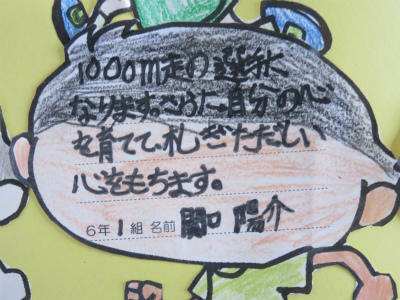 1000m走の選手に
なります。さらに、自分の心
を育てて、礼ぎただしい
心をもちます。
6年1組 名前 関口 陽介